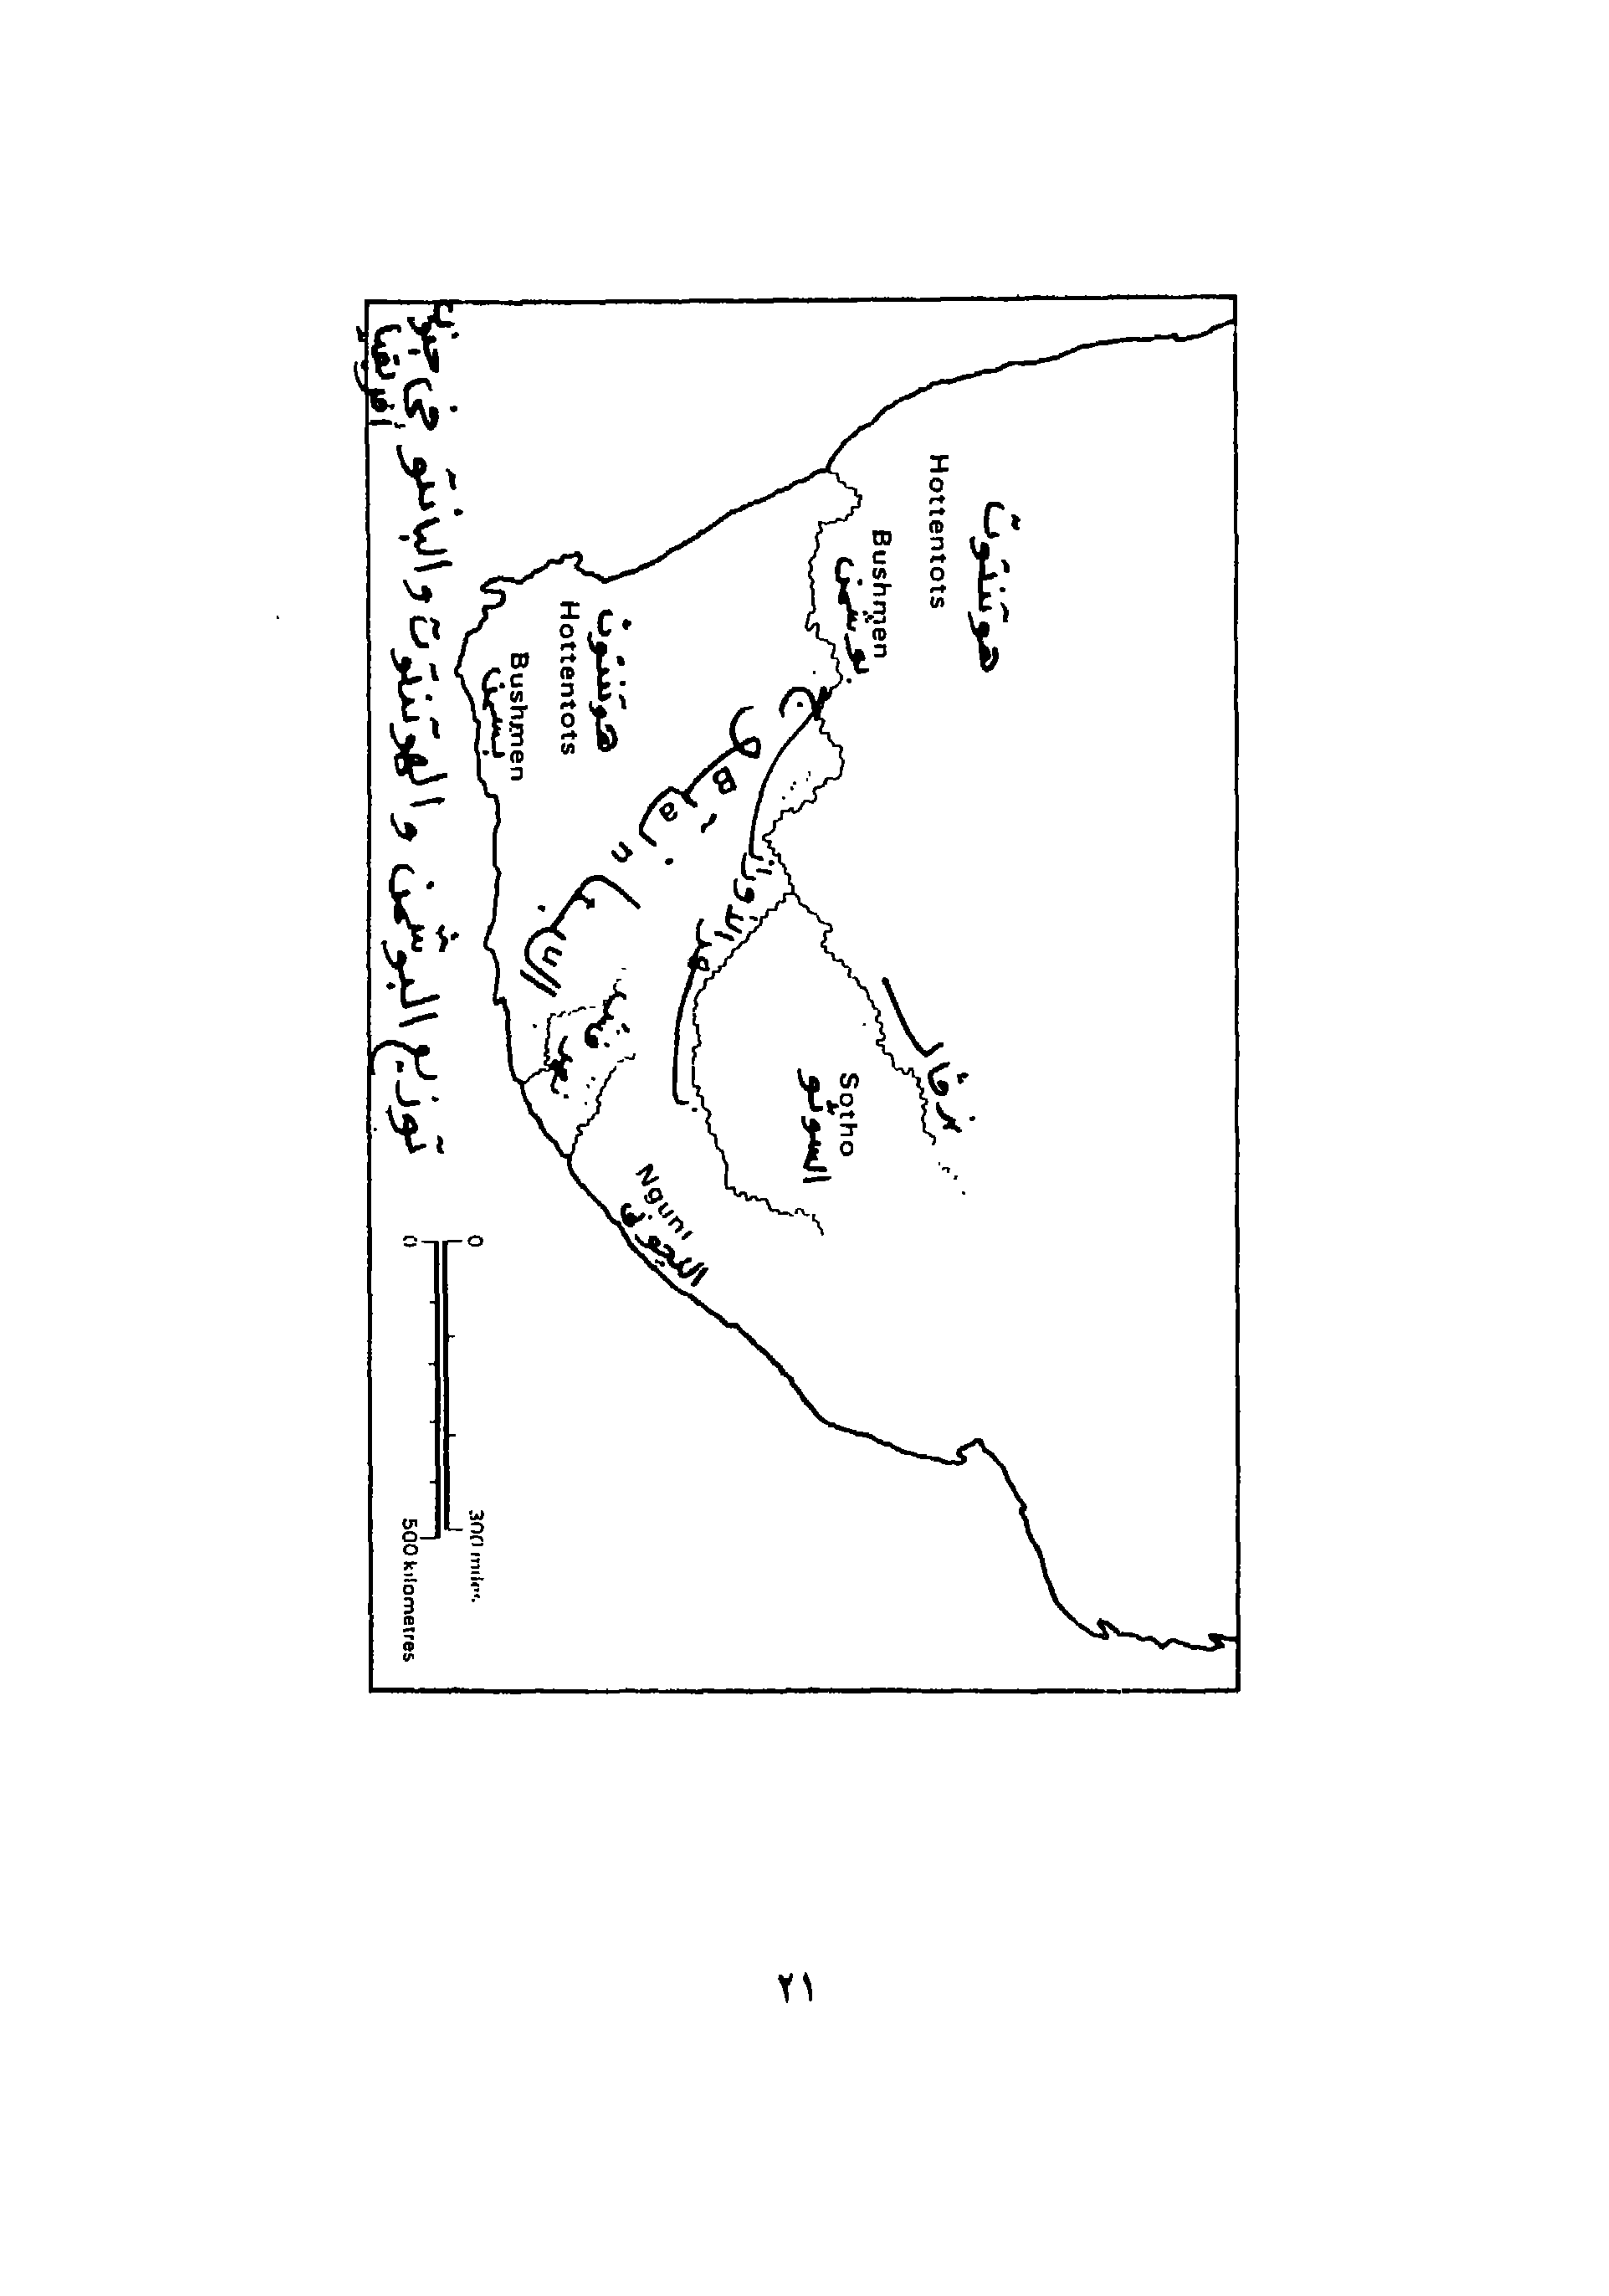 هوتنتوت
Hottentots
Bushmen
بوشمن
نهر فال
Sotho
السوتو
نهر الاورانج
هوتنتوت
Hottentots
Bushmen
بشمن
B a n
Nguni
0 300 miles
0 500 kilometres
توزيع البوشمن و الهوتنتوت والبانتو في جنوب
افريقيا
٢١